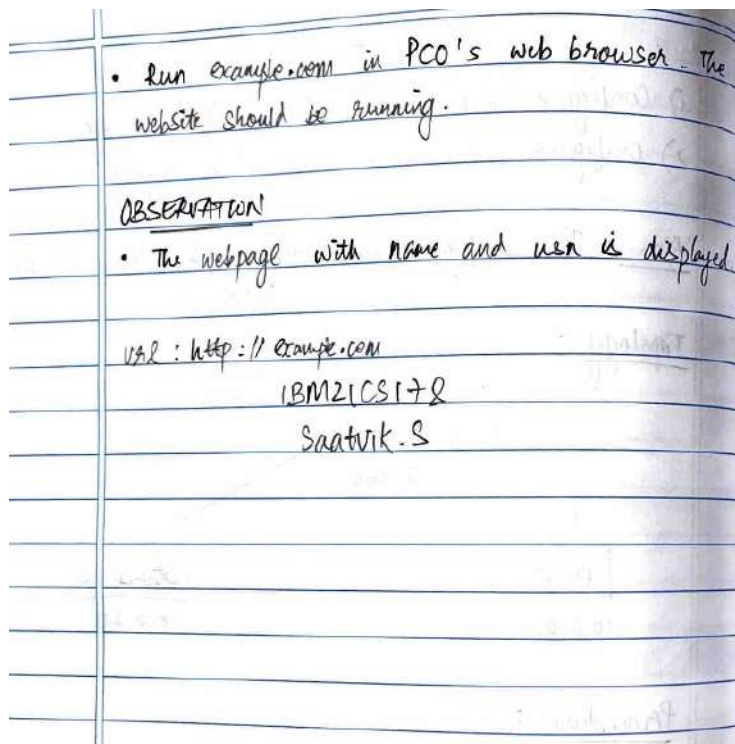 • Run example.com in PC0's web browser. The
website should be running.
OBSERVATION
• The webpage with name and usn is displayed
URL : http://example.com
1BM21CS178
Saatvik.S